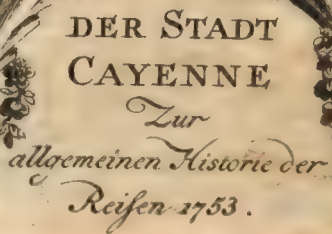 DER STADT
CAYENNE
Zur
allgemeinen Historie der
Reisen 1753.